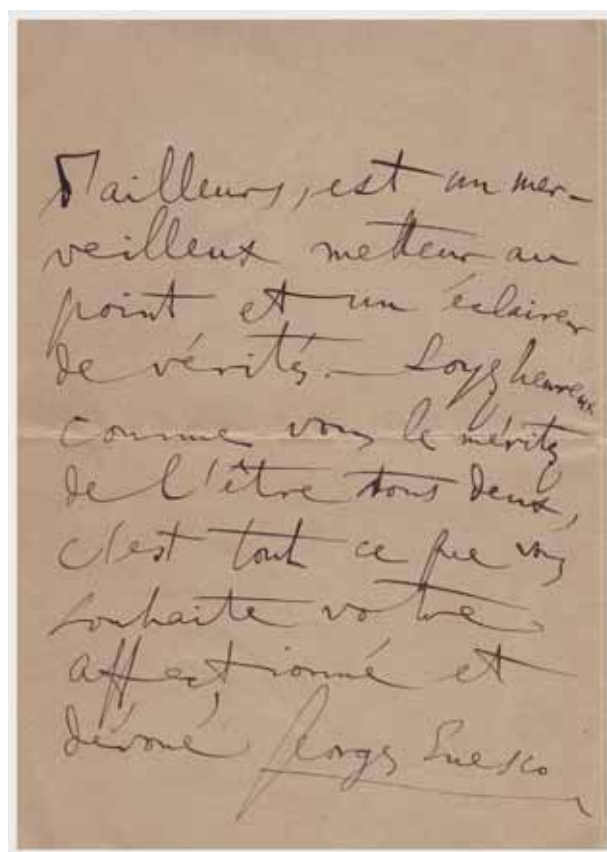 d'ailleurs, est un mer-
veilleux metteur au
point et un éclaireur
de vérités. — Soyez heureux
comme vous le méritez
de l'être tous deux,
c'est tout ce que vous
souhaite votre
affectionné et
dévoué Georges Enesco